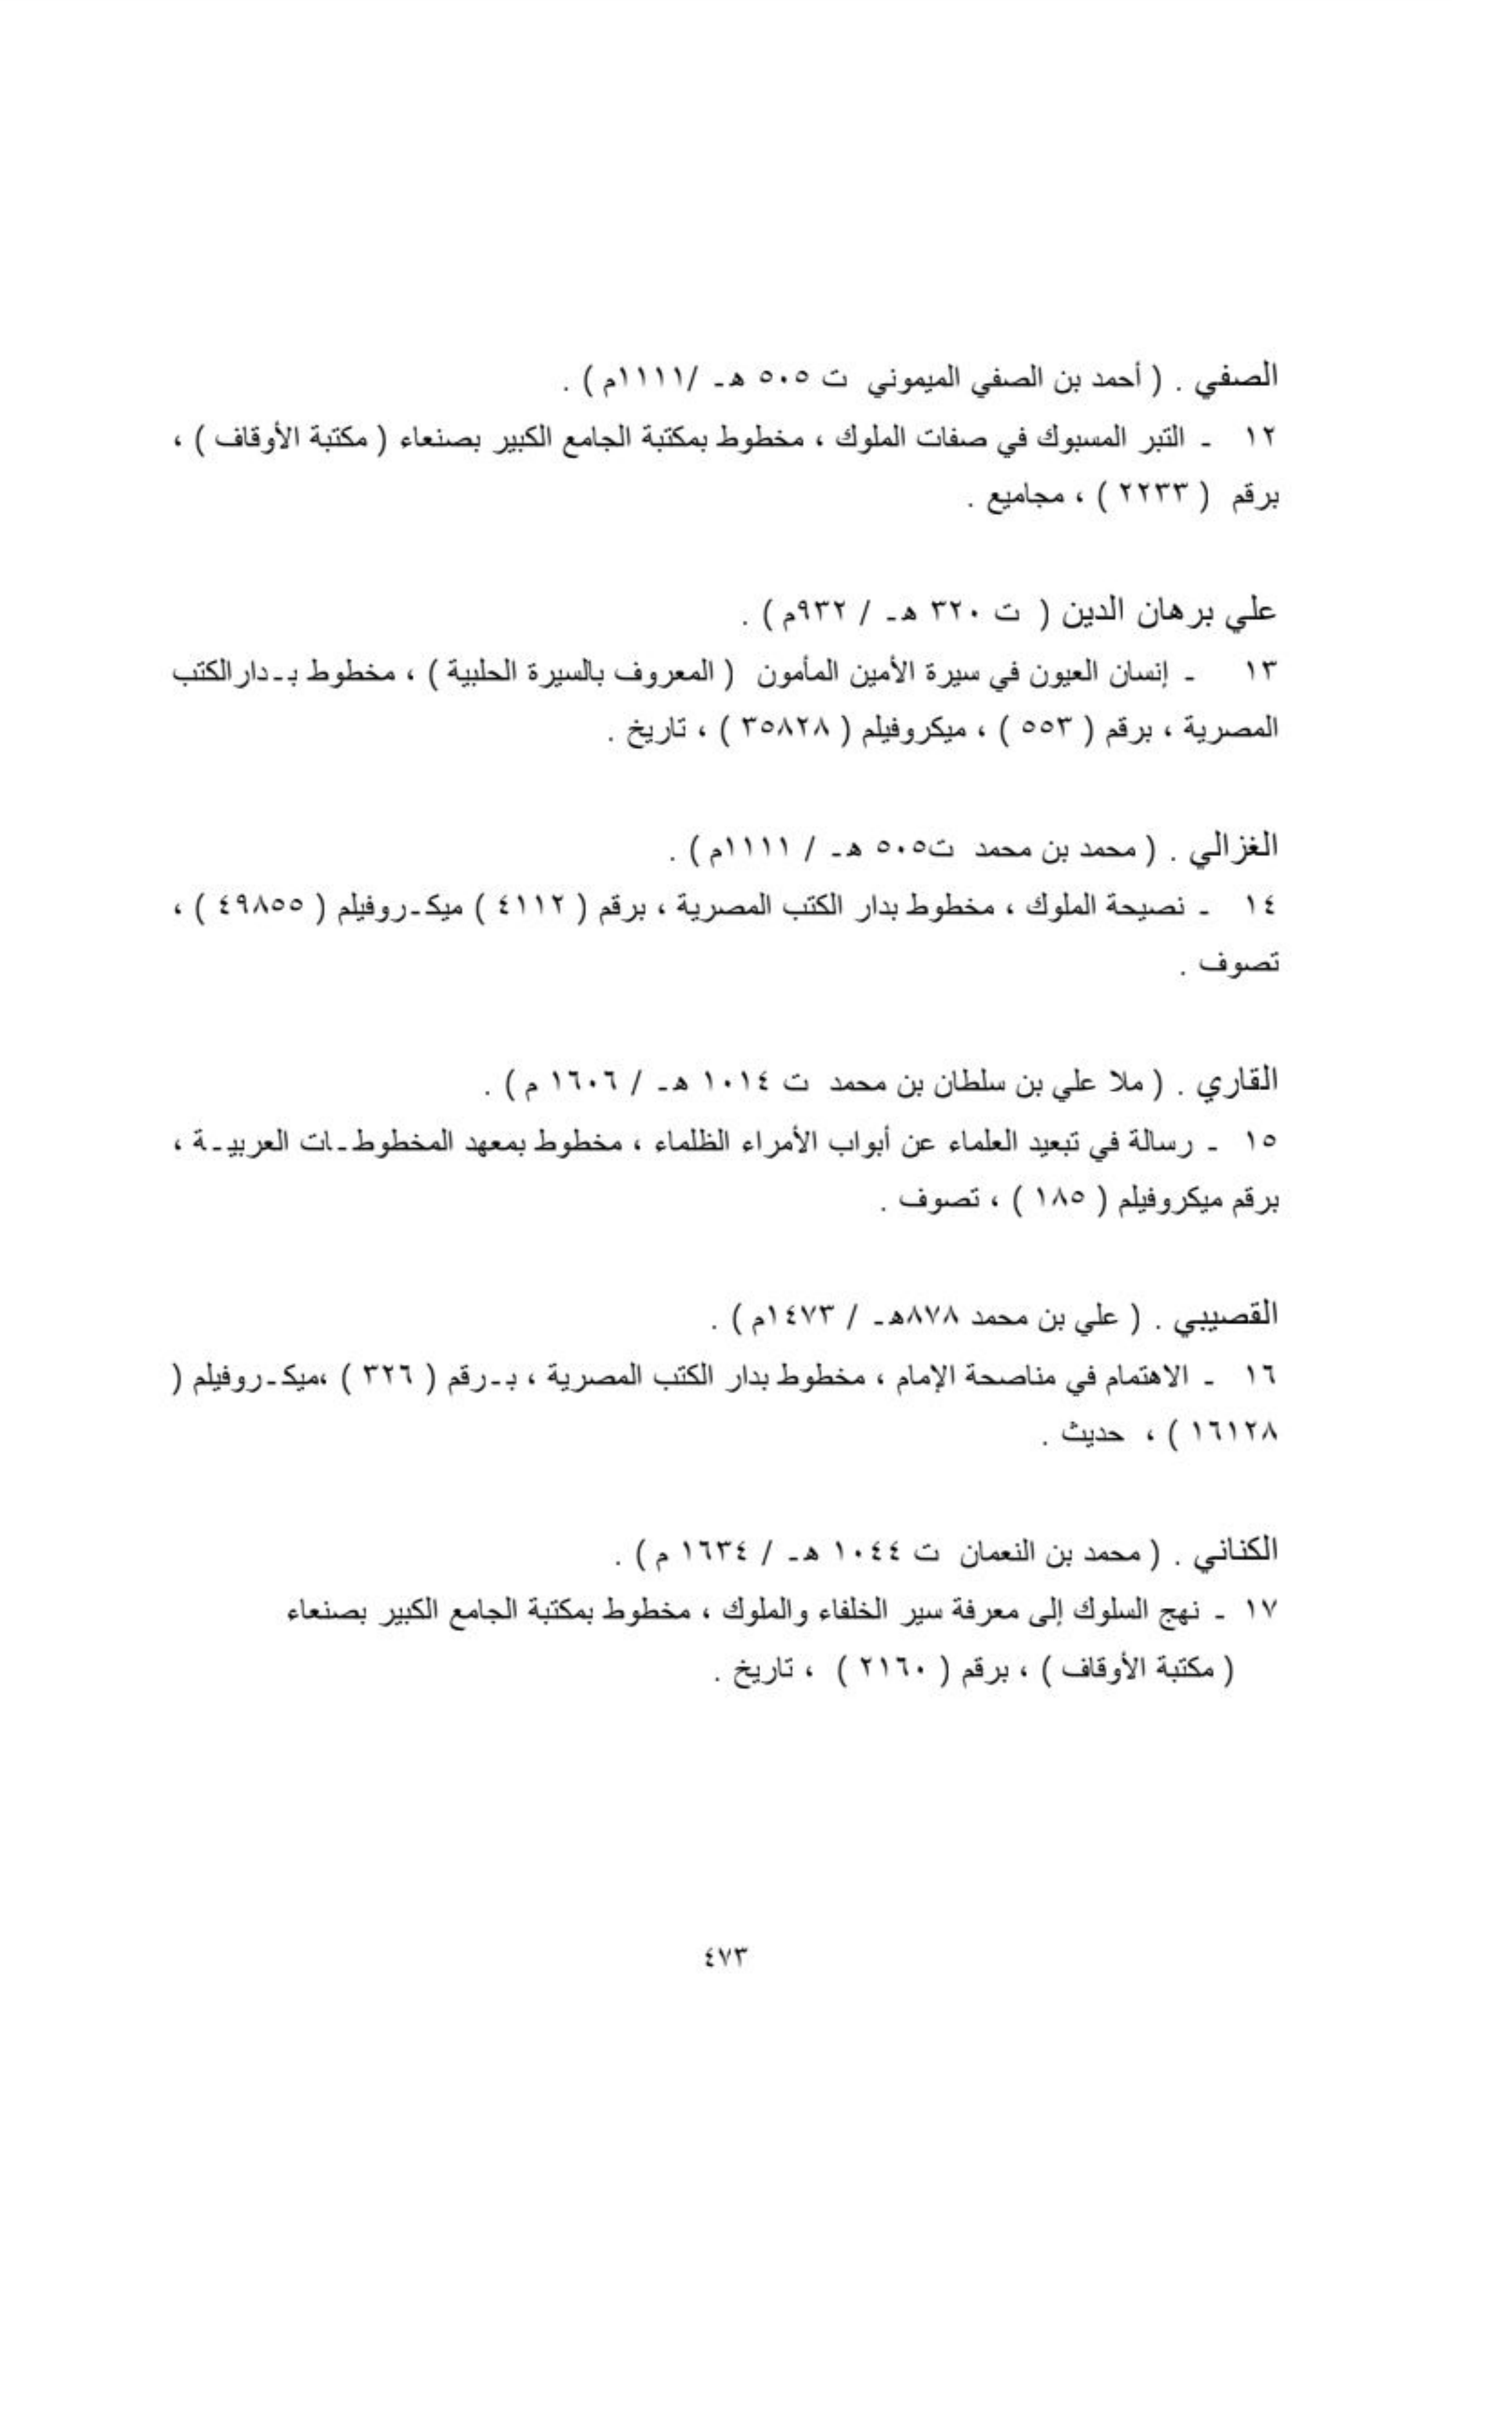 الصفي . ( أحمد بن الصفي الميموني ت ٥٠٥ هـ /١١١١م ) .
١٢ ـ التبر المسبوك في صفات الملوك ، مخطوط بمكتبة الجامع الكبير بصنعاء ( مكتبة الأوقاف ) ،
برقم ( ٢٢٣٣ ) ، مجاميع .
علي برهان الدين ( ت ٣٢٠ هـ / ٩٣٢م ) .
١٣ ـ إنسان العيون في سيرة الأمين المأمون ( المعروف بالسيرة الحلبية ) ، مخطوط بـدار الكتب
المصرية ، برقم ( ٥٥٣ ) ، ميكروفيلم ( ٣٥٨٢٨ ) ، تاريخ .
الغزالي . ( محمد بن محمد ت٥٠٥ هـ / ١١١١م ) .
١٤ ـ نصيحة الملوك ، مخطوط بدار الكتب المصرية ، برقم ( ٤١١٢ ) ميكـروفيلم ( ٤٩٨٥٥ ) ،
تصوف .
القاري . ( ملا علي بن سلطان بن محمد ت ١٠١٤ هـ / ١٦٠٦ م ) .
١٥ ـ رسالة في تبعيد العلماء عن أبواب الأمراء الظلماء ، مخطوط بمعهد المخطوطـات العربيـة ،
برقم ميكروفيلم ( ١٨٥ ) ، تصوف .
القصيبي . ( علي بن محمد ٨٧٨هـ / ١٤٧٣م ) .
١٦ ـ الاهتمام في مناصحة الإمام ، مخطوط بدار الكتب المصرية ، بـرقم ( ٣٢٦ ) ،ميكـروفيلم (
١٦١٢٨ ) ، حديث .
الكناني . ( محمد بن النعمان ت ١٠٤٤ هـ / ١٦٣٤ م ) .
١٧ ـ نهج السلوك إلى معرفة سير الخلفاء والملوك ، مخطوط بمكتبة الجامع الكبير بصنعاء
( مكتبة الأوقاف ) ، برقم ( ٢١٦٠ ) ، تاريخ .
٤٧٣